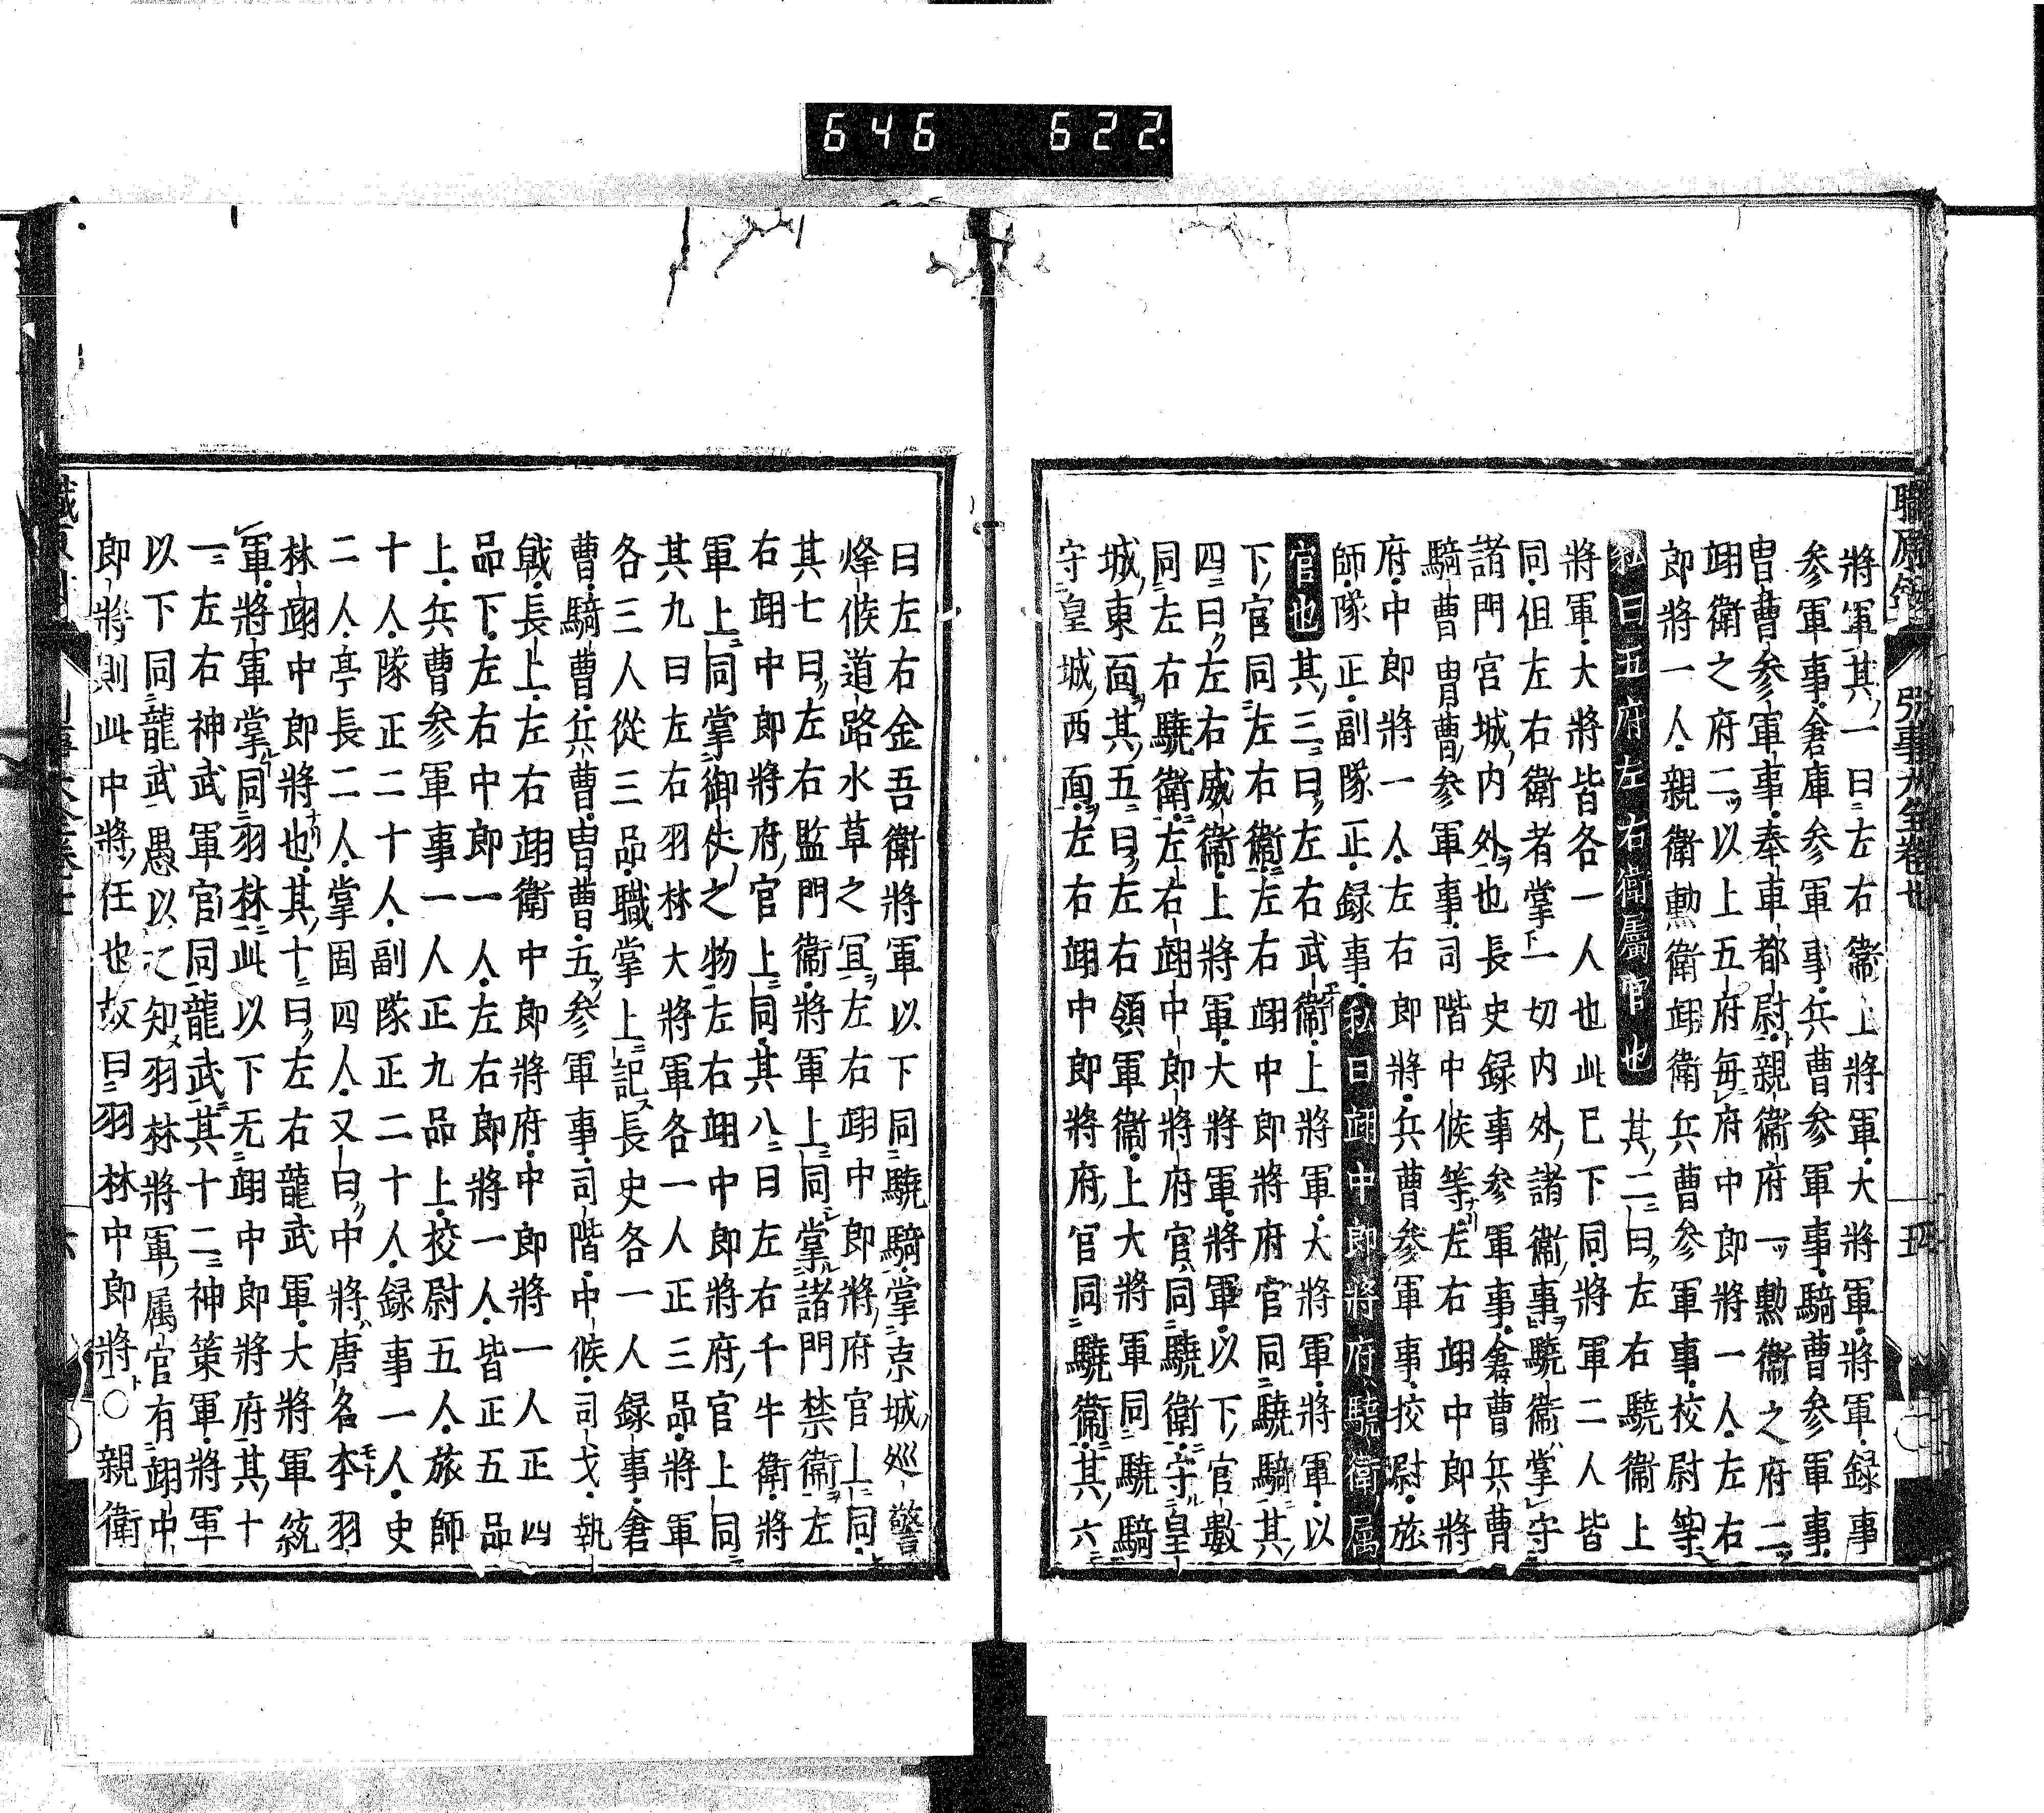 646 622
職原鈔 引事大全卷廿 五
將軍其一曰左右衛上將軍大將軍將軍錄事
参軍事倉庫参軍事兵曹参軍事騎曹参軍事
冑曹参軍事奉車都尉親衛府一勲衛之府二
翊衛之府二以上五府每府中郎將一人左右
郎將一人親衛勲衛翊衛兵曹参軍事校尉等
私曰五府左右衛屬官也其二曰左右驍衛上
將軍大將皆各一人也此巳下同將軍二人皆
同但左右衛者掌一切内外諸衛事驍衛掌守
諸門宮城内外也長史録事参軍事倉曹兵曹
騎曹冑曹参軍事司階中候等左右翊中郎將
府中郎將一人左右郎將兵曹参軍事校尉旅
師隊正副隊正録事私曰翊中郎將府驍衛属
官也其三曰左右武衛上將軍大將軍將軍以
下官同左右衛左右翊中郎將府官同驍騎其
四曰左右威衛上將軍大將軍將軍以下官數
同左右驍衛左右翊中郎將府官同驍衛守皇
城東面其五曰左右領軍衛上大將軍同驍騎
守皇城西面左右翊中郎將府官同驍衛其六
曰左右金吾衛將軍以下同驍騎掌京城巡警
烽候道路水草之宜左右翊中郎將府官上同
其七曰左右監門衛將軍上同掌諸門禁衛左
右翊中郎將府官上同其八曰左右千牛衛將
軍上同掌御仗之物左右翊中郎將府官上同
其九曰左右羽林大將軍各一人正三品將軍
各三人從三品職掌上記長史各一人録事倉
曹騎曹兵曹冑曹五参軍事司階中候司戈執
戟長上左右翊衛中郎將府中郎將一人正四
品下左右中郎一人左右郎將一人皆正五品
上兵曹参軍事一人正九品上校尉五人旅師
十人隊正二十人副隊正二十人録事一人史
二人亭長二人掌固四人又曰中將唐名李羽
林翊中郎將也其十曰左右龍武軍大將軍統
軍將軍掌同羽林此以下无翊中郎將府其十
一左右神武軍官同龍武其十二神策軍將軍
以下同龍武愚以之知羽林將軍属官有翊中
郎將則此中將任也故曰羽林中郎將〇親衛